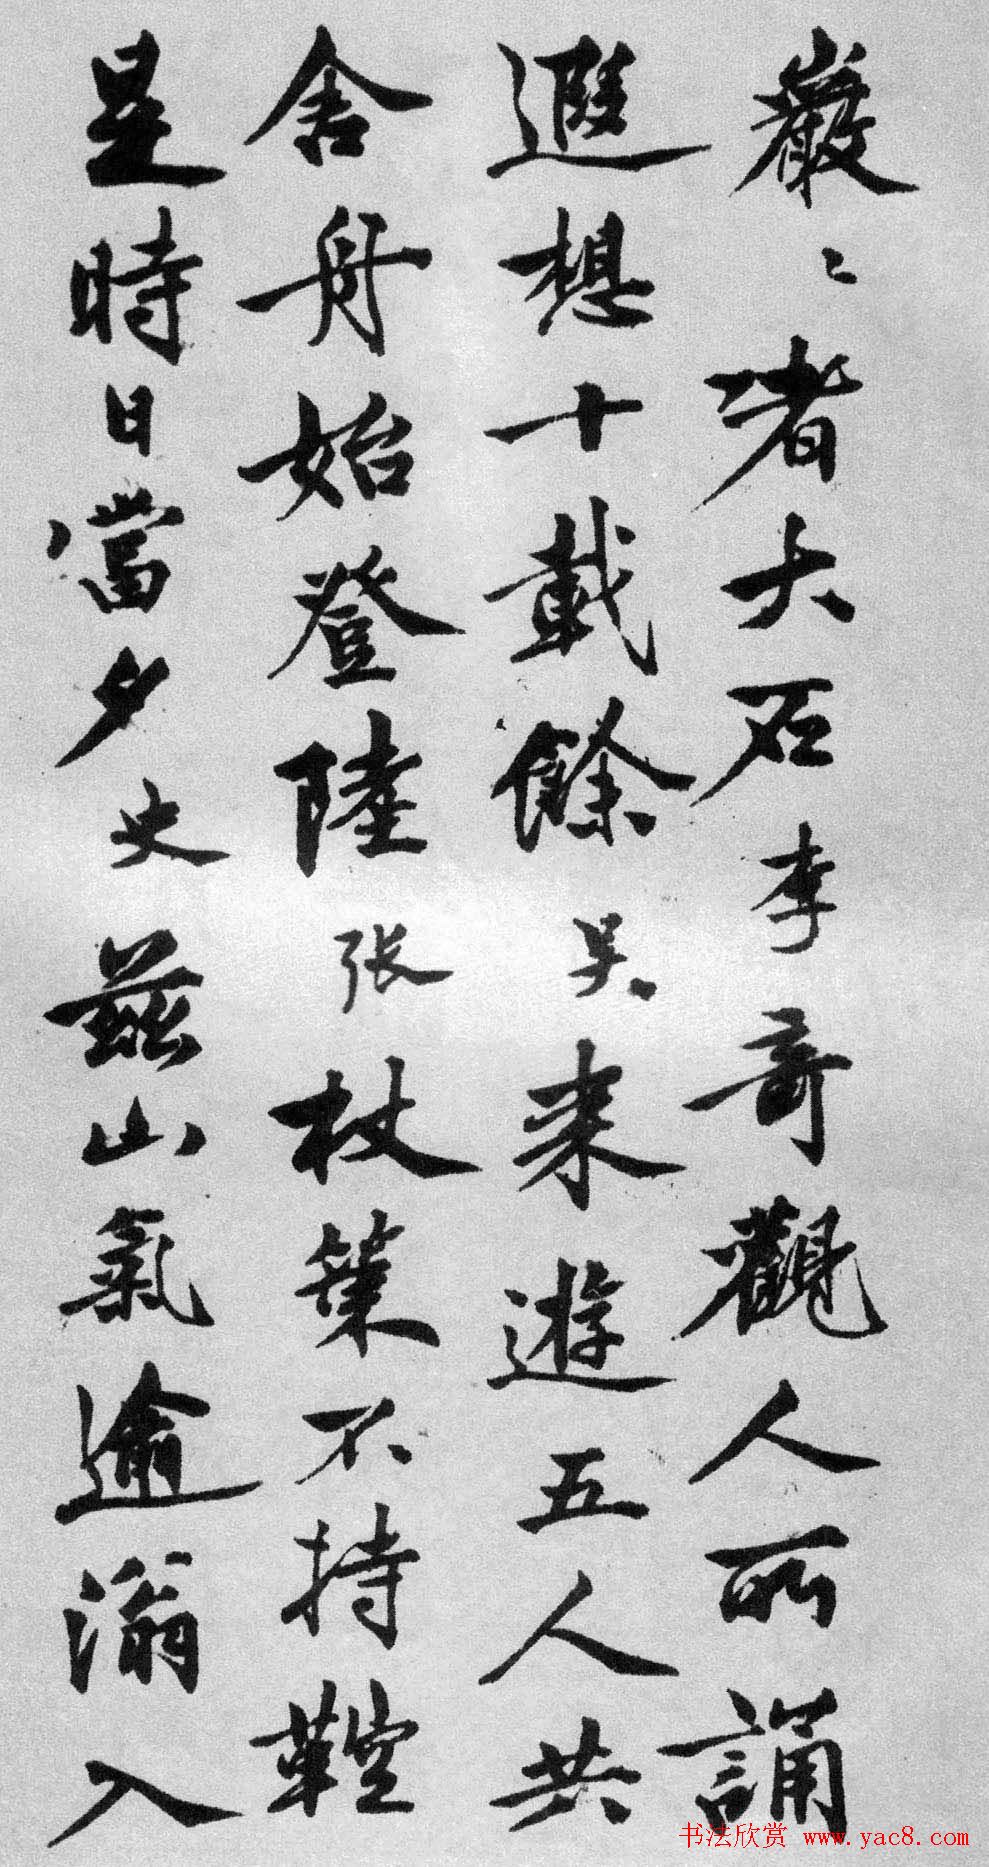 巖〻者大石李奇觀人所誦
遐想十載餘吳來遊五人共
舍舟始登陸張杖策不持鞚
是時日當夕史茲山氣逾滃入
书法欣赏 www.yac8.com